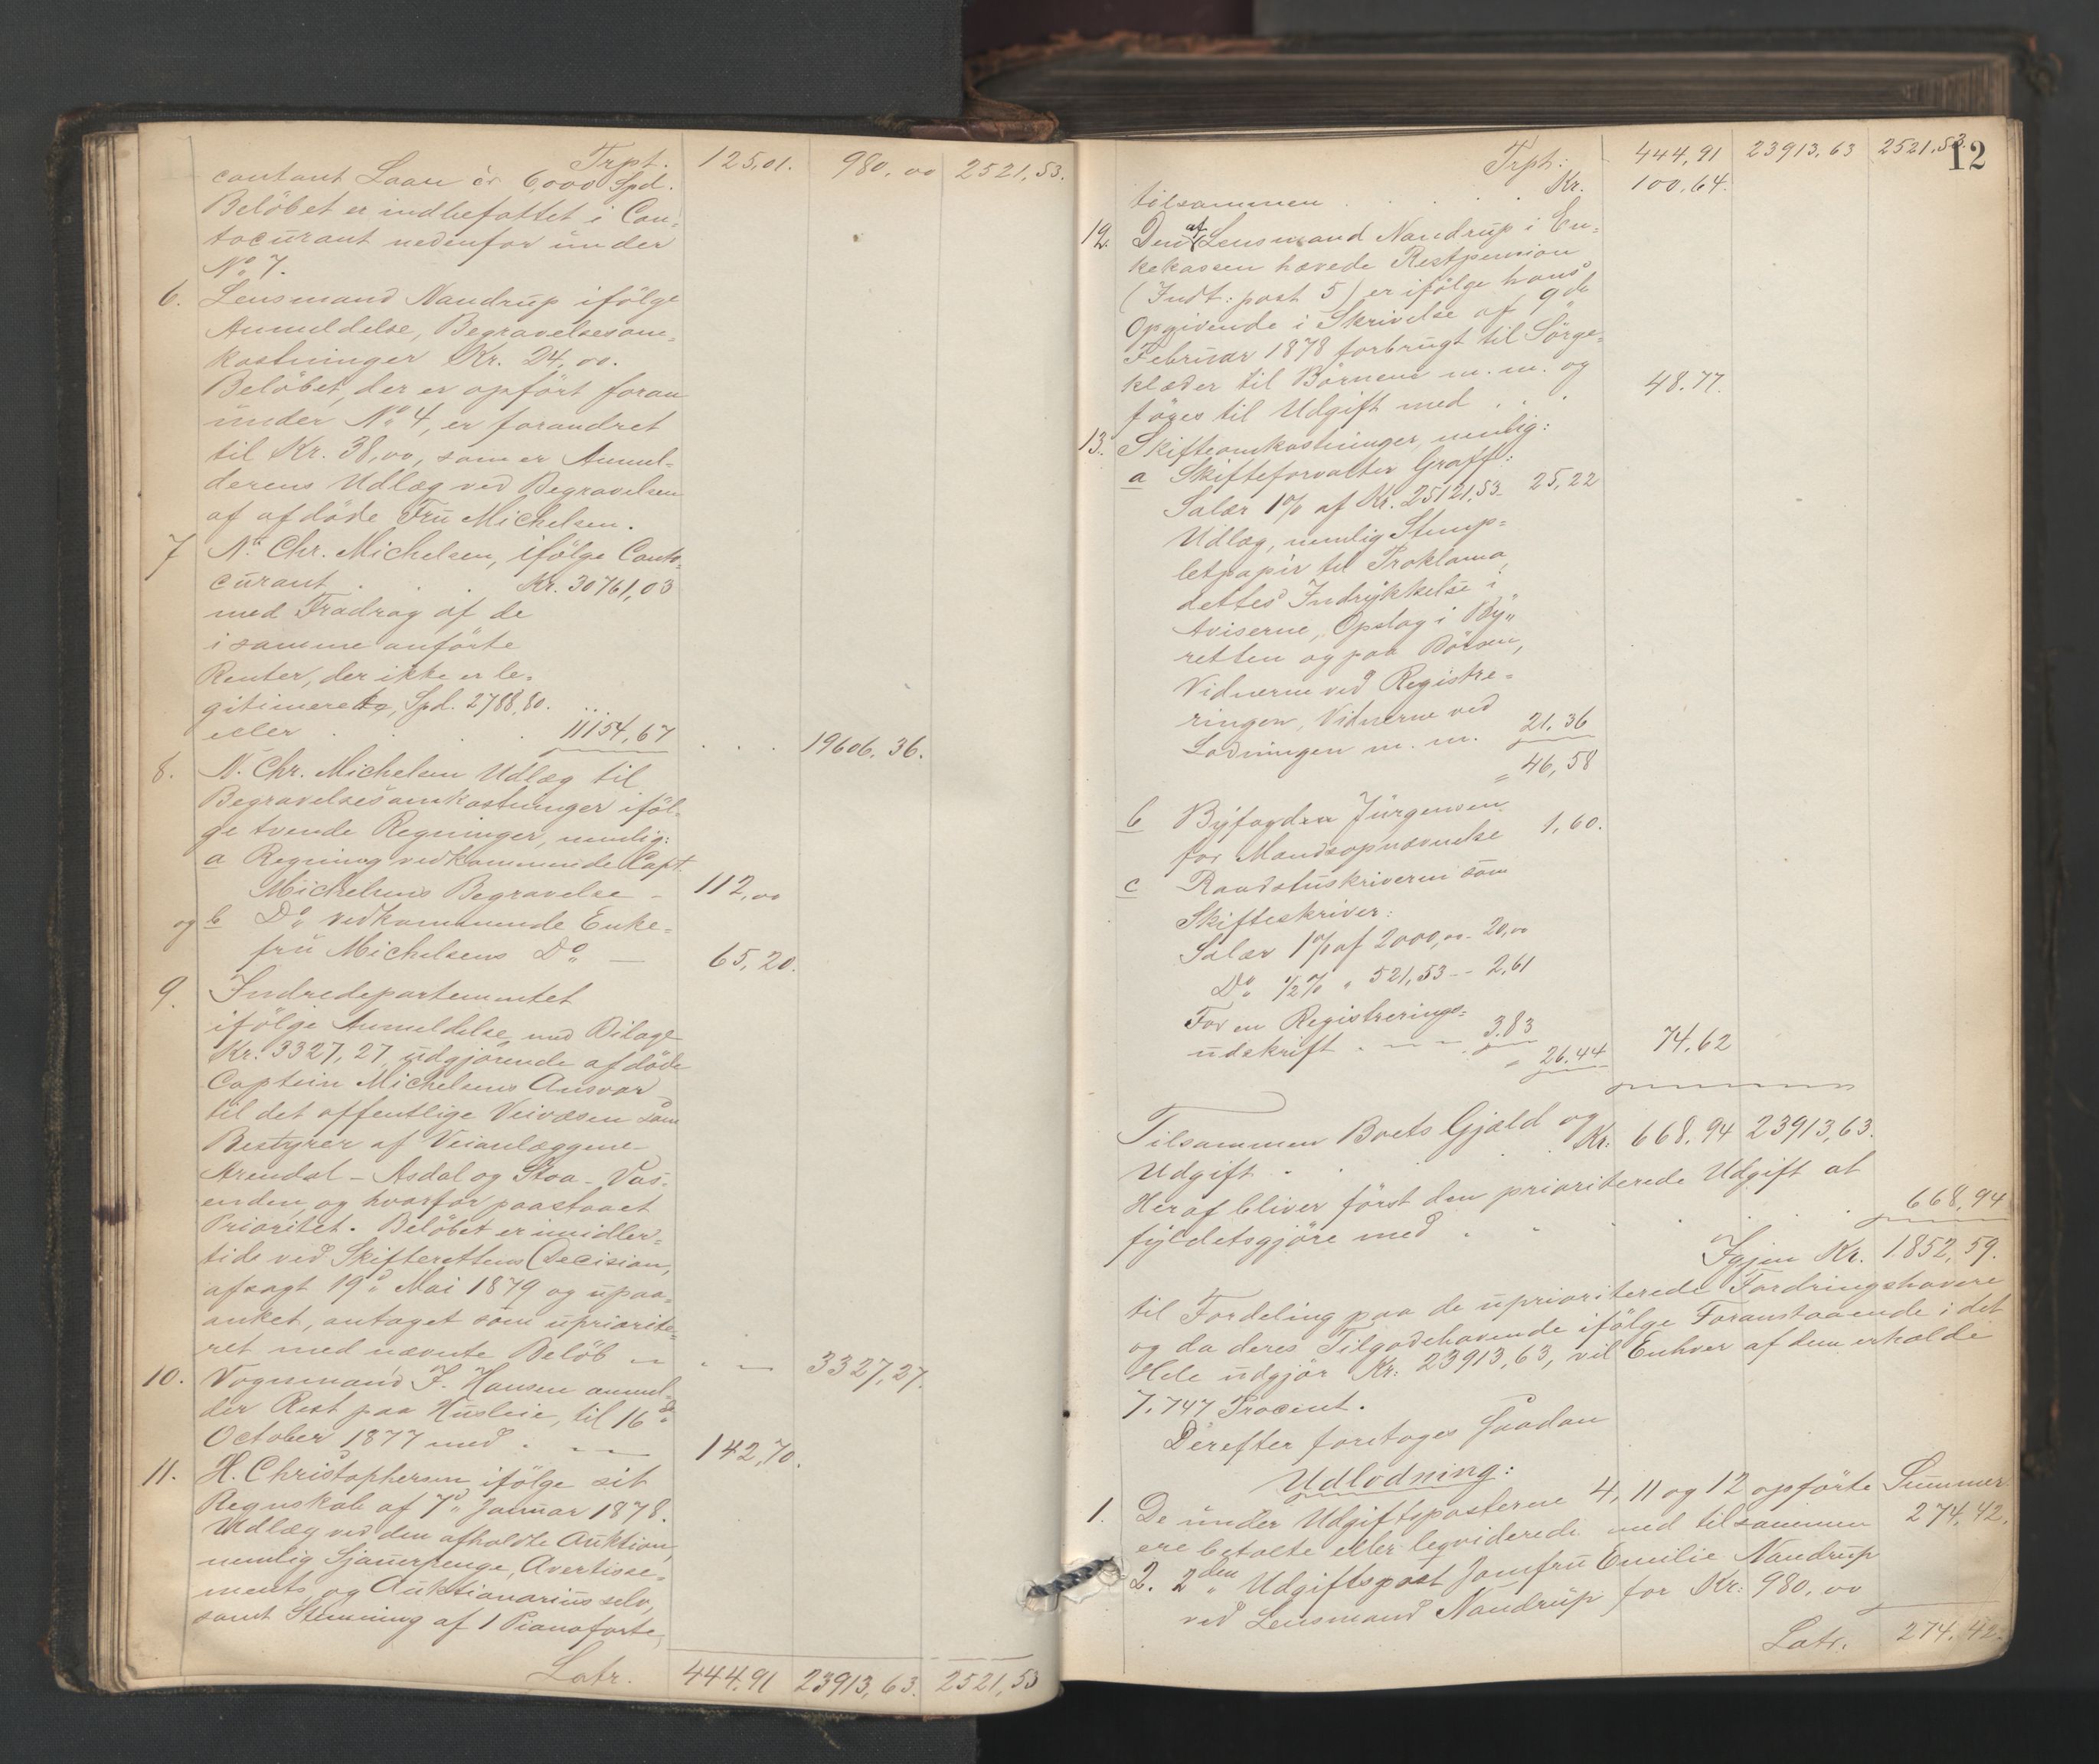 Trpt. 125,01. 980,00 2521,53.
contant Laan är 6,000 Spd.
Belöbet er indbefattet i Con-
tocurant nedenfor under
No 7.
6. Lensmand Nandrup ifölge
Anmeldelse, Begravelsesom-
kostninger Kr. 24,00.
Belöbet, der er opfört foran
under No 4, er forandret
til Kr. 38,00, som er Anmel-
derens Udlæg ved Begravelsen
af afdöde Fru Michelsen.
7 N. Chr. Michelsen, ifölge Conto-
curant . . . Kr. 30761,03
med Fradrag af de
i samme anförte
Renter, der ikke er le-
gitimerede, Spd. 2788,80.
eller . . . . 11154,67 . . . 19606,36.
8. N. Chr. Michelsen Udlæg til
Begravelsesomkostninger iföl-
ge tvende Regninger, nemlig:
a Regning vedkommende Capt.
Michelsens Begravelse - 112,00
og b Do vedkommende Enke-
fru Michelsens Do — 65,20.
9. Indredepartementet
ifölge Anmeldelse med Bilage
Kr. 3327,27, udgjørende afdöde
Captein Michelsens Ansvar
til det offentlige Veivæsen som
Bestyrer af Veianlæggene
Arendal - Asdal og Stoa - Vas-
enden, og hvorfor paastaaet
Prioritet. Belöbet er imidler-
tid ved Skifterettens Decision,
afsagt 19d Mai 1879 og upaa-
anket, antaget som upriorite-
ret med nævnte Belöb — " — 3327,27.
10. Vognmand F. Hansen anmel-
der Rest paa Husleie, til 16de
October 1877 med . — — 142,70.
11. H. Christophersen ifölge sit
Regnskab af 7d Januar 1878.
Udlæg ved den afholdte Auktion,
nemlig Sjauerpenge, Avertisse-
ments og Auktionarius selv,
samt Stemning af 1 Pianoforte,
Latr. 444,91 23913,63. 2521,53
12
Trpt: 444,91 23913,63 2521,53.
tilsammen . . . . . Kr. 100,64.
12. Den af Lensmand Nandrup i En-
kekassen hævede Restpension
(Indt: post 5) er ifölge hans
Opgivende i Skrivelse af 9de
Februar 1878 forbrugt til Sörge-
klæder til Börnene m. m. og
föres til Udgift med . . . 48.77.
13. Skifteomkostninger, nemlig:
a Skifteforvalter Graff:
Salær 1% af Kr. 2521,53- 25,22
Udlæg, nemlig Stemp-
letpapir til Proklama,
dettes Indrykkelse i
Aviserne, Opslag i By-
retten og paa Börsen,
Vidnerne ved Registre-
ringen, Vidnerne ved
Lodningen m. m. 21,36
= 46,58
b Byfogden Jürgensen
for Mandsopnævnelse 1,60.
c Raadstuskriveren som
Skifteskriver:
Salær 1% af 2000,00- 20,00
Do 1/2% " 521,53 -- 2,61
For en Registrerings-
udskrift . — — — 3,83
= 26,44 74,62
Tilsammen Boets Gjæld og
Udgift . . . . Kr: 668,94 23913,63.
Heraf bliver först den prioriterede Udgift at
fyldestgjöre med . . . . . . 668,94
Igjen Kr. 1852,59.
til Fordeling paa de uprioriterede Fordringshavere
og da deres Tilgodehavende ifölge Foranstaaende i det
Hele udgjör Kr: 23913,63, vil Enhver af dem erholde
7,747 Procent.
Derefter foretages saadan
Udlodning:
1. De under Udgiftsposterne 4, 11 og 12 opförte Summer
ere betalte eller leqviderede med tilsammen 274,42.
2. 2den Udgiftspost Jomfru Emilie Nandrup
ved Lensmand Nandrup for Kr: 980,00
Latr. 274,42.